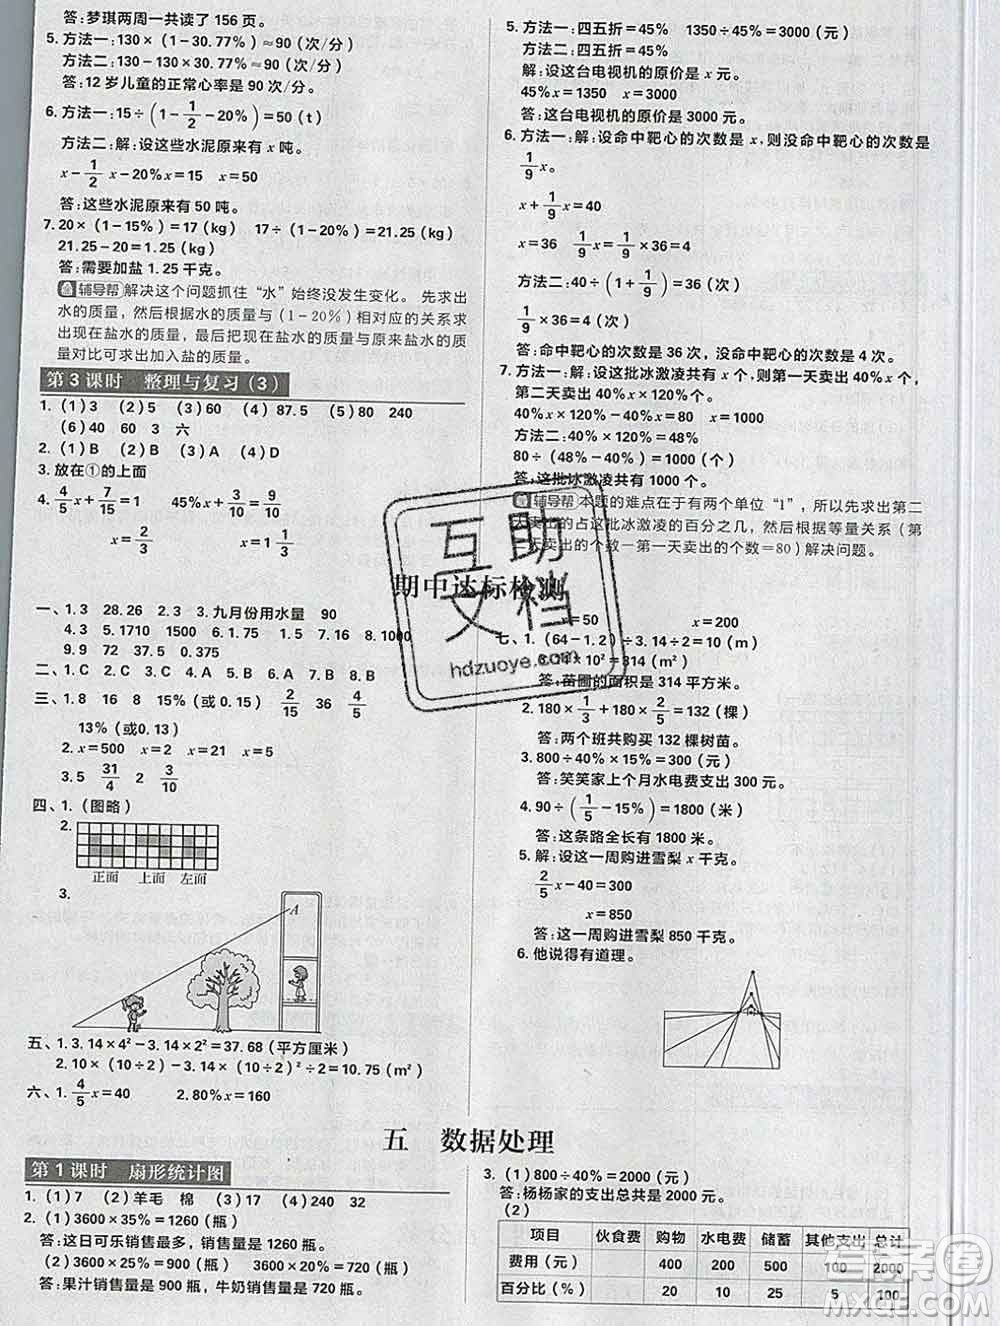 答:梦琪两周一共读了 156 页。
5. 方法一:130×(1-30.77%)≈90(次/分)
方法二:130-130×30.77%≈90(次/分)
答:12 岁儿童的正常心率是 90 次/分。
6. 方法一:15÷(1-1/2-20%)=50(t)
方法二:解:设这些水泥原来有 x 吨。
x-1/2 x-20%x=15 x=50
答:这些水泥原来有 50 吨。
7. 20×(1-15%)=17(kg) 17÷(1-20%)=21.25(kg)
21.25-20=1.25(kg)
答:需要加盐 1.25 千克。
辅导帮 解决这个问题抓住“水”始终没发生变化。先求出
水的质量,然后根据水的质量与(1-20%)相对应的关系求
出现在盐水的质量,最后把现在盐水的质量与原来盐水的质
量对比可求出加入盐的质量。
第 3 课时 整理与复习(3)
1. (1)3 (2)5 (3)60 (4)87.5 (5)80 240
(6)40 60 3 六
2. (1)B (2)B (3)A (4)D
3. 放在①的上面
4. 4/5 x+7/15 x=1 45%x+3/10=9/10
x=2/3 x=1 1/3
5. 方法一:四五折=45% 1350÷45%=3000(元)
方法二:四五折=45%
解:设这台电视机的原价是 x 元。
45%x=1350 x=3000
答:这台电视机的原价是 3000 元。
6. 方法一:解:设命中靶心的次数是 x,则没命中靶心的次数是
1/9 x。
x+1/9 x=40
x=36 1/9 x=1/9×36=4
方法二:40÷(1+1/9)=36
1/9×36=4
答:命中靶心的次数是 36 次,没命中靶心的次数是 4 次。
7. 方法一:解:设这批冰激凌共有 x 个,则第一天卖出 40%x 个,
第二天卖出 40%x×120%个。
40%x×120%-40%x=80 x=1000
方法二:40%×120%=48%
80÷(48%-40%)=1000(个)
答:这批冰激凌共有 1000 个。
辅导帮 本题的难点在于有两个单位“1”,所以先求出第二
天卖出的占这批冰激凌的百分之几,然后根据等量关系(第
二天卖出的个数-第一天卖出的个数=80)解决问题。
期中达标检测
一、1. 3 28.26 2. 3 3. 九月份用水量 90
4. 3 5. 1710 6. 15 7. 2 8. 1000
9. 9 72 37.5 0.375
二、1. C 2. C 3. C 4. A 5. B 6. B 7. B
三、1. 8 16 8 15%(或 0.15) 2/15 36 4/5
13%(或 0.13)
2. x=500 x=21 x=5
3. 5 31/4 2 3/10
四、1. (图略)
2.
正面 上面 左面
3.
A
五、1. 3.14×4²-3.14×2²=37.68(平方厘米)
2. 10×(10÷2)-3.14×(10÷2)²÷2=10.75(m²)
六、1. 4/5 x=40 2. 80%x=160
x=50 x=200
七、1. (64-1.2)÷3.14÷2=10(m)
3.14×10²=314(m²)
答:苗圃的面积是 314 平方米。
2. 180×1/3+180×2/5=132(棵)
答:两个班共购买 132 棵树苗。
3. 800÷40%×15%=300(元)
答:笑笑家上个月水电费支出 300 元。
4. 90÷(1/5-15%)=1800(米)
答:这条路全长有 1800 米。
5. 解:设这一周购进雪梨 x 千克。
2/5 x-40=300
x=850
答:这一周购进雪梨 850 千克。
6. 他说得有道理。
五 数据处理
第 1 课时 扇形统计图
1. (1)7 (2)羊毛 棉 (3)17 (4)240 32
2. (1)3600×35%=1260(瓶)
答:这日可乐销售最多,销售量是 1260 瓶。
(2)3600×25%=900(瓶) 3600×20%=720(瓶)
答:果汁销售量是 900 瓶,牛奶销售量是 720 瓶。
3. (1)800÷40%=2000(元)
答:杨杨家的支出总共是 2000 元。
(2)
项目 伙食费 购物 水电费 储蓄 其他支出 总计
费用(元) 400 200 500 100 2000
百分比(%) 20 10 25 5 100
互助文档
hdzuoye.com
答案圈
MXQE.COM